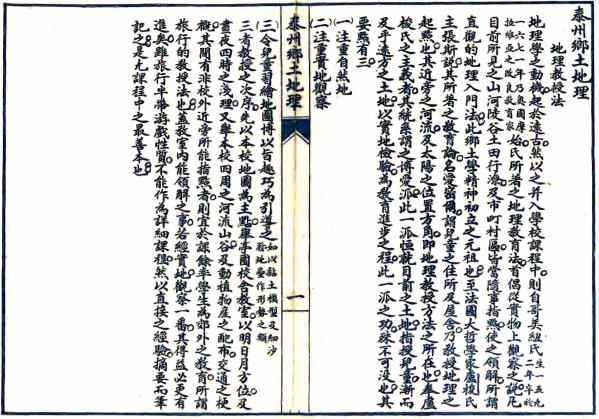 泰州鄉土地理
地理教授法
地理學之動機起於遠古然以之并入學校課程中則自哥美紐氏生一五九二年卒於
一六七一年乃奧國摩拉維亞之改良教育家始氏所著之地理教育法首倡從實物上觀察之說凡
目前所見之山河陵谷土田行潦及市町村區皆當隨事指點使之領解所謂
直觀的地理入門法此鄉土學精神初立之元祖也至法國大哲學家盧梭氏
主張斯說其所著之教育論名愛彌爾謂兒童之住所及屋舍乃教授地理之
起點也其近旁之河流及太陽之位置方角即地理教授方法之所在也奉盧
梭氏之主義者其統系謂之博愛派此一派恒就目前之土地指授兒童漸而
及乎遠方之土地以實地檢驗為教育進步之程此一派之功殊不可沒也其
要點有三
(一)注重自然地
(二)注重實地觀察
泰州鄉土地理
一
(三)令兒童習繪地圖博以旨趣巧為引導之如以黏土模型及細沙於地疊作形勢之類
三者教授之次序先以本校地圖為主點舉本國校舍教室以明日月方位及
晝夜四時之淺理又舉本校四周之河流山谷及動植物產之配布交通之梗
概其間有非校外近旁所能指點者則宜於課餘率學生為郊外之教育所謂
旅行的教授法也蓋教室內能領解之事若經實地觀察一番其得益必更有
進矣雖旅行半屬游戲性質不能作為詳細課程然以直接之經驗摘要而筆
記之是九課程中之最善本也